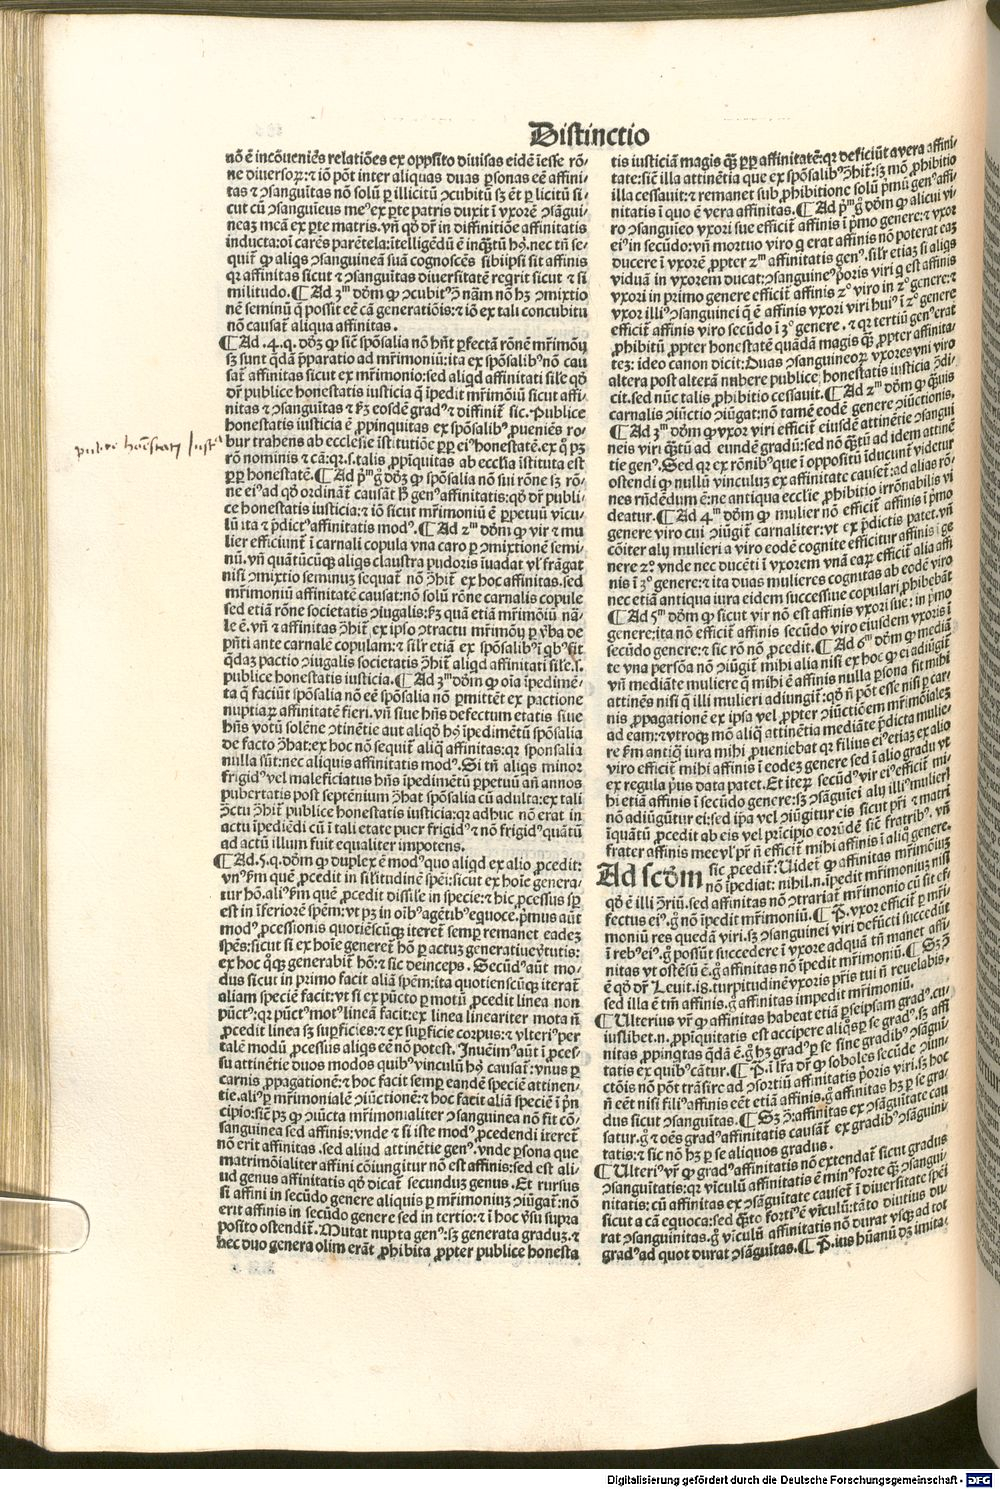 Distinctio
nō ē incōueniēs relatiōes ex opposito diuisas eidē īesse rō⸗
ne diuersoꝝ: ⁊ iō pōt inter aliquas duas ꝑsonas eē affini
tas ⁊ ꝯsanguītas nō solū ꝑ illicitū ꝯcubitū sꝫ ēt ꝑ licitū si⸗
cut cū ꝯsanguīeus meꝰ ex ꝑte patris duxit ī vxorē ꝯsāgui⸗
neaꝫ meā ex ꝑte matris. vn̄ qō dr̄ in diffinitiōe affinitatis
inducta: oī carēs parētela: ītelligēdū ē inqꝫtū hꝰ. nec tn̄ se⸗
quit̄ ꝙ aliqs ꝯsanguineā suā cognoscēs sibiipsi sit affinis
qꝛ affinitas sicut ⁊ ꝯsanguītas diuersitatē reqrit sicut ⁊ si
militudo. ¶ Ad 3ᵐ dōm ꝙ ꝯcubitꝰ ꝯ̄ nām nō hꝫ ꝯmixtio
nē seminū q̄ possit eē cā generatiōis: ⁊ iō ex tali concubitu
nō causat̄ aliqua affinitas.
¶ Ad .4. q. dōm ꝙ sic̄ spōsalia nō hn̄t ꝑfectā rōnē mr̄imōij
sꝫ sunt q̄dā p̄paratio ad mr̄imoniū: ita ex spōsalibꝰ nō cau
sat̄ affinitas sicut ex mr̄imonio: sed aliqd affinitati sil̄e qō
dr̄ publice honestatis iusticia q̄ īpedit mr̄imōiū sicut affi⸗
nitas ⁊ ꝯsanguītas ⁊ ẜm eosdē gradꝰ ⁊ diffinit̄ sic. Publice
honestatis iusticia ē ꝓpinquitas ex spōsalibꝰ ꝓueniēs ro⸗
bur trahens ab ecclesie īstitutiōe ꝓꝑ eiꝰ honestatē. ex q̊ pꝫ
rō nominis ⁊ cā: qꝛ .s. talis ꝓpīquitas ab ecclīa īstituta est
ꝓꝑ honestatē. ¶ Ad p̄ᵐ g̊ dōꝫ ꝙ spōsalia nō sui rōne sꝫ rō⸗
ne eiꝰ ad qō ordinan̄t̄ causāt hꝰ genꝰ affinitatis: qō dr̄ publi⸗
ce honestatis iusticia: ⁊ iō sicut mr̄imoniū ē ꝑpetuū vīcu⸗
lū ita ⁊ p̄dictꝰ affinitatis modꝰ. ¶ Ad 2ᵐ dōm ꝙ vir ⁊ mu
lier efficiunt̄ ī carnali copula vna caro ꝑ ꝯmixtionē semi⸗
nū. vn̄ quātūcūqꝫ aliqs claustra pudoris īuadat vl̓ frāgat
nisi ꝯmixtio seminuꝫ sequat̄ nō ꝯ̄hit̄ ex hoc affinitas. sed
mr̄imoniū affinitatē causat: nō solū rōne carnalis copule
sed etiā rōne societatis ꝯiugalis: ẜm quā etiā mr̄imōiū na⸗
le ē. vn̄ ⁊ affinitas ꝯ̄hit̄ ex ipso ꝯtractu mr̄imōij ꝑ v̄ba de
p̄n̄ti ante carnalē copulam: ⁊ sil̄r etiā ex spōsalibꝰ ī qbꝰ fit
q̄daꝫ pactio ꝯiugalis societatis ꝯ̄hit̄ aliqd affinitati sil̄e .s.
publice honestatis iusticia. ¶ Ad 3ᵐ dōm ꝙ oīa īpedimē⸗
ta q̄ faciūt spōsalia nō eē spōsalia nō ꝑmittēt ex pactione
nuptiaꝝ affinitatē fieri. vn̄ siue hn̄s defectum etatis siue
hn̄s votū solēne ꝯtinētie aut aliqō hꝰ īpedimētū spōsalia
de facto ꝯ̄hat: ex hoc nō sequit̄ aliq̄ affinitas: qꝛ sponsalia
nulla sūt: nec aliquis affinitatis modꝰ. Si tn̄ aliqs minor
frigidꝰ vel maleficiatus hn̄s īpedimētū ꝑpetuū an̄ annos
pubertatis post septēnium ꝯ̄hat spōsalia cū adulta: ex tali
ꝯ̄ctu ꝯ̄hit̄ publice honestatis iusticia: qꝛ adhuc nō erat in
actu īpediēdi cū ī tali etate puer frigidꝰ ⁊ nō frigidꝰ quātū
ad actū illum fuit equaliter impotens.
¶ Ad .5. q. dōm ꝙ duplex ē modꝰ quo aliqd ex alio ꝓcedit:
vnꝰ ẜm quē ꝓcedit in sil̄itudinē spēi: sicut ex hoīe genera⸗
tur hō. aliꝰ ẜm quē ꝓcedit dissil̄e in specie: ⁊ hic ꝓcessus sꝑ
est in īferiorē spēm: vt pꝫ in oībꝰ agētibꝰ equoce. p̄mus aūt
modꝰ ꝓcessionis quotiēscūqꝫ iteret̄ semꝑ remanet eadeꝫ
spēs: sicut si ex hoīe generet̄ hō ꝑ actuꝫ generatiue v̓tutis:
ex hoc q̊qꝫ generabit̄ hō: ⁊ sic deinceps. Secūdꝰ aūt mo⸗
dus sicut in primo facit aliā spēm: ita quotienscūqꝫ iterat̄
aliam speciē facit: vt si ex pūcto ꝑ motū ꝓcedit linea non
pūctꝰ: qꝛ pūctꝰ motꝰ lineā facit: ex linea lineariter mota n̄
ꝓcedit linea sꝫ suꝑficies: ⁊ ex suꝑficie corpus: ⁊ vlteriꝰ per
talē modū ꝓcessus aliqs eē nō potest. Inueīmꝰ aūt ī ꝓces⸗
su attinētie duos modos quibꝰ vinculū hꝰ causat̄: vnus ꝑ
carnis ꝓpagationē: ⁊ hoc facit semꝑ eandē speciē attinen⸗
tie. aliꝰ ꝑ mr̄imonialē ꝯiūctionē: ⁊ hoc facit aliā speciē ī p̄n
cipio: sic̄ pꝫ ꝙ ꝯiūcta mr̄imonialiter ꝯsanguinea nō fit cō⸗
sanguinea sed affinis: vnde ⁊ si iste modꝰ ꝓcedendi iteret̄
nō erit affinitas. sed aliud attinētie genꝰ. vnde ꝑsona que
matrimōialiter affini cōiungitur nō est affinis: sed est ali⸗
ud genus affinitatis qō dicat̄ secunduꝫ genus. Et rursus
si affini in secūdo genere aliquis ꝑ mr̄imoniuꝫ ꝯiūgat̄: nō
erit affinis in secūdo genere sed in tertio: ⁊ ī hoc v̄su supra
posito ostendit̄. Mutat nupta genꝰ: sꝫ generata graduꝫ. ⁊
hec duo genera olim erāt ꝓhibita ꝓpter publice honesta
tis iusticiā magis q̄ꝫ ꝓꝑ affinitatē: qꝛ deficiūt a vera affini⸗
tate: sic̄ illa attinētia que ex spōsalibꝰ ꝯ̄hit̄: sꝫ mō ꝓhibitio
illa cessauit: ⁊ remanet sub ꝓhibitione solū p̄mū genꝰ affi⸗
nitatis ī quo ē vera affinitas. ¶ Ad p̄ᵐ g̊ dōm ꝙ alicui vi
ro ꝯsanguieo vxori sue efficit̄ affinis ī p̄mo genere: ⁊ vxor
eiꝰ in secūdo: vn̄ mortuo viro q̄ erat affinis nō poterat eaꝫ
ducere ī vxorē ꝓpter 2ᵐ affinitatis genꝰ. sil̄r etiaꝫ si aliqs
viduā in vxorem ducat: ꝯsanguineꝰ p̄oris viri q̄ est affinis
vxori in primo genere efficit̄ affinis 2ꝰ viro in 2ꝰ genere: ⁊
vxor illiꝰ ꝯsanguinei q̄ ē affinis vxori viri huiꝰ ī 2ꝰ genere
efficit̄ affinis viro secūdo ī 3ꝰ genere. ⁊ qꝛ tertiū genꝰ erat
ꝓhibitū ꝓpter honestatē quādā magis q̄ꝫ ꝓpter affinita⸗
teꝫ: ideo canon dicit: Duas ꝯsanguineoꝝ vxores vni viro
altera post alterā nubere publice honestatis iusticia ꝯ̄di⸗
cit. sed nūc talis ꝓhibitio cessauit. ¶ Ad 2ᵐ dōm ꝙ q̄uis
carnalis ꝯiūctio ꝯiūgat: nō tamē eodē genere ꝯiūctionis.
¶ Ad 3ᵐ dōm ꝙ vxor viri efficit̄ eiusdē attinētie ꝯsangui
neis viri q̄ꝫtū ad eundē gradū: sed nō q̄ꝫtū ad idem attinē
tie genꝰ. Sed qꝛ ex rōnibꝰ que ī oppositū īducunt̄ videtur
ostendi ꝙ nullū vinculuꝫ ex affinitate causet̄: ad alias rō⸗
nes rn̄dēdum ē: ne antiqua ecclīe ꝓhibitio irrōnabilis vi
deatur. ¶ Ad 4ᵐ dōm ꝙ mulier nō efficit̄ affinis ī p̄mo
genere viro cui ꝯiūgit̄ carnaliter: vt ex p̄dictis patet. vn̄
cōiter alij mulieri a viro eodē cognite efficitur affinis ī ge
nere 2ꝰ. vnde nec ducēti ī vxorem vnā eaꝝ efficit̄ alia affi
nis ī 3ꝰ genere: ⁊ ita duas mulieres cognitas ab eodē viro
nec etiā antiqua iura eidem successiue copulari ꝓhibebāt
¶ Ad 5ᵐ dōm ꝙ sicut vir nō est affinis vxori sue: in p̄mo
genere: ita nō efficit̄ affinis secūdo viro eiusdem vxoris ī
secūdo genere: ⁊ sic rō nō ꝓcedit. ¶ Ad 6ᵐ dōm ꝙ mediā
te vna persōa nō ꝯiūgit̄ mihi alia nisi ex hoc ꝙ ei adiūgit̄
vn̄ mediāte muliere q̄ mihi ē affinis nulla ꝑsona fit mihi
attinēs nisi q̄ illi mulieri adiungit̄: qō n̄ pōt esse nisi ꝑ car⸗
nis ꝓpagationē ex ipsa vel ꝓpter ꝯiūctiōem mr̄imōialeꝫ
ad eam: ⁊ vtroqꝫ mō aliq̄ attinētia mediāte p̄dicta mulie⸗
re ẜm antiq̄ iura mihi ꝓueniebat qꝛ filius eiꝰ etiaꝫ ex alio
viro efficit̄ mihi affinis ī eodeꝫ genere sed ī alio gradu vt
ex regula p̄us data patet. Et iteꝝ secūdꝰ vir eiꝰ efficit̄ mi⸗
hi etiā affinis ī secūdo genere: sꝫ ꝯsāguīei alij illiꝰ mulieri
nō adiūgūtur ei: sed ip̄a vel ꝯiūgitur eis sicut p̄ri ⁊ matri
inquātū ꝓcedit ab eis vel p̄ncipio eorūdē sic̄ fratribꝰ. vn̄
frater affinis mee vl̓ pr̄ n̄ efficit̄ mihi affinis ī aliq̊ genere.
Ad scōm sic ꝓcedit̄: Uidet̄ ꝙ affinitas mr̄imōiuꝫ
nō īpediat: nihil .n. īpedit mr̄imonium nisi
qō ē illi ꝯ̄riū. sed affinitas nō ꝯtrariat̄ mr̄imonio cū sit ef⸗
fectus eiꝰ. g̊ nō īpedit mr̄imoniū. ¶ P̄. vxor efficit̄ ꝑ mr̄i
moniū res quedā viri. sꝫ ꝯsanguinei viri defūcti succedūt
ī rebꝰ eiꝰ. g̊ possūt succedere ī vxore ad quā tn̄ manet affi
nitas vt ostēsū ē. g̊ affinitas nō īpedit mr̄imoniū. ¶ Sꝫ ꝯ̄
ē qō dr̄ Leuit. 18. turpitudinē vxoris pr̄is tui n̄ reuelabis.
sed illa ē tm̄ affinis. g̊ affinitas impedit mr̄imoniū.
¶ Ulterius vr̄ ꝙ affinitas habeat etiā ꝑ seipsam gradꝰ. cu⸗
iuslibet .n. ꝓpīquitatis est accipere aliqꝫs ꝑ se gradꝰ. sꝫ affi
nitas ꝓpīnqtas q̄dā ē. g̊ hꝫ gradꝰ ꝑ se sine gradibꝰ ꝯsāgui⸗
tatis ex quibꝰ cātur. ¶ P̄. ī l̄ra dr̄ ꝙ soboles secūde ꝯiun⸗
ctōis nō pōt trāsire ad ꝯsortiū affinitatis p̄oris viri. sꝫ hoc
n̄ eēt nisi filiꝰ affinis eēt etiā affinis. g̊ affinitas hꝫ ꝑ se gra⸗
dus sicut ꝯsanguītas. ¶ Sꝫ ꝯ̄: affinitas ex ꝯsāguītate cau
satur. g̊ ⁊ oēs gradꝰ affinitatis causāt̄ ex gradibꝰ ꝯsāguini
tatis: ⁊ sic nō hꝫ ꝑ se aliquos gradus.
¶ Ulteriꝰ vr̄ ꝙ gradꝰ affinitatis nō extendāt̄ sicut gradus
ꝯsanguītatis: qꝛ vīculū affinitatis ē minꝰ forte q̄ꝫ ꝯsangui
nitatis: cū affinitas ex ꝯsāguītate causet̄ ī diuersitate spēi
sicut a cā equoca: sed q̄ꝫto fortiꝰ ē vīculū: tāto diutius du
rat ꝯsanguinitas. g̊ vīculū affinitatis nō durat vsqꝫ ad tot
gradꝰ ad quot durat ꝯsāguītas. ¶ P̄. ius hūanū dꝫ imita⸗
Digitalisierung gefördert durch die Deutsche Forschungsgemeinschaft - DFG